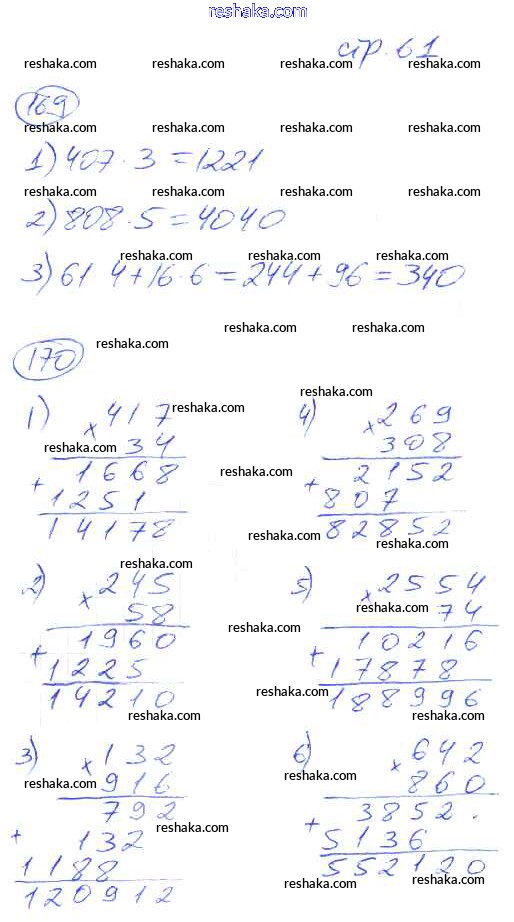 reshaka.com
стр. 61
reshaka.com reshaka.com reshaka.com reshaka.com
169
reshaka.com reshaka.com reshaka.com reshaka.com
1) 407 · 3 = 1221
reshaka.com reshaka.com reshaka.com reshaka.com
2) 808 · 5 = 4040
reshaka.com reshaka.com reshaka.com
3) 61 4 + 16 · 6 = 244 + 96 = 340
reshaka.com reshaka.com
170 reshaka.com
1) × 417 reshaka.com
reshaka.com 34
+ 1668
1251
14178
4) × 269 reshaka.com
308
reshaka.com
+ 2152
807
82852
reshaka.com reshaka.com
2) × 245
58
reshaka.com
+ 1960
1225
14210
reshaka.com
5) × 2554
reshaka.com 74
+ 10216
17878
reshaka.com
188996
reshaka.com
3) × 132
reshaka.com 916
792
reshaka.com
+ 132
1188
120912
6) × 642
reshaka.com 860
reshaka.com
+ 3852.
5136
552120
reshaka.com
reshaka.com